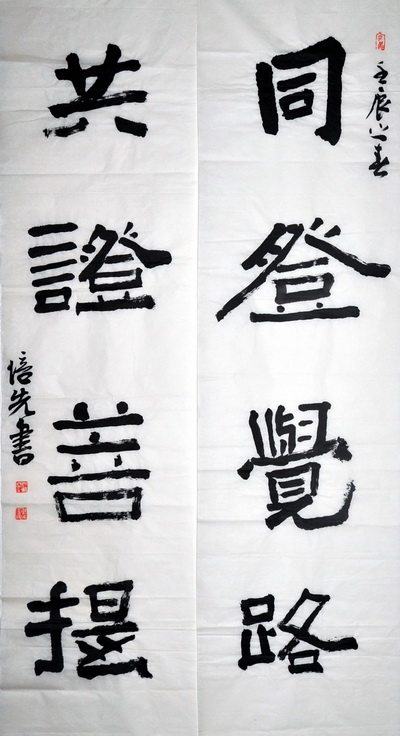 壬辰之春
同登覺路
共證菩提
培先書